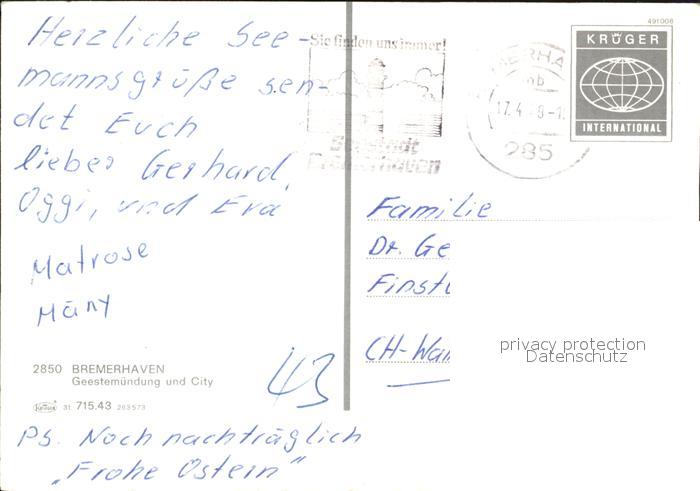 Herzliche See-
mannsgrüße sen-
det Euch
lieber Gerhard,
Oggi, und Eva
Matrose
Mäny
2850 BREMERHAVEN
Geestemündung und City
Krüger 31 715.43 263573
43
Ps. Noch nachträglich
„Frohe Ostern"
Sie finden uns immer!
Seestadt
Bremerhaven
MERHA
mb
17.4
285
491006
KRÜGER
INTERNATIONAL
Familie
Dr. Ge
Finst
CH-Wa
privacy protection
Datenschutz